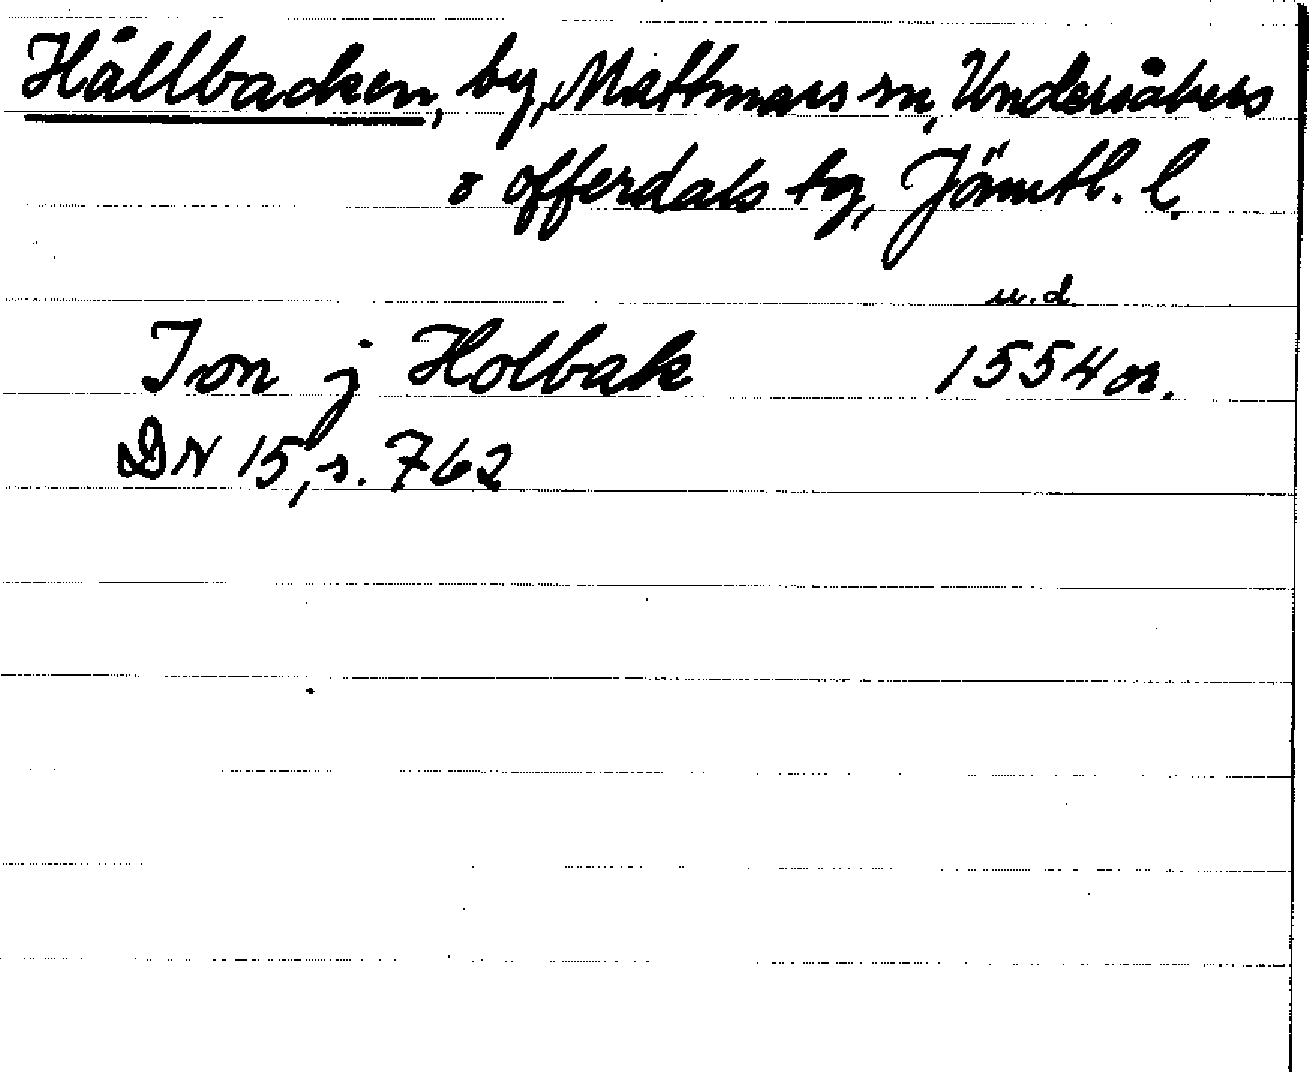 Hållbacken, by, Mattmars sn, Undersåkers
o Offerdals tg, Jämtl. l.
u.d
Ion j Holbak 1554 or.
DN 15, s. 762